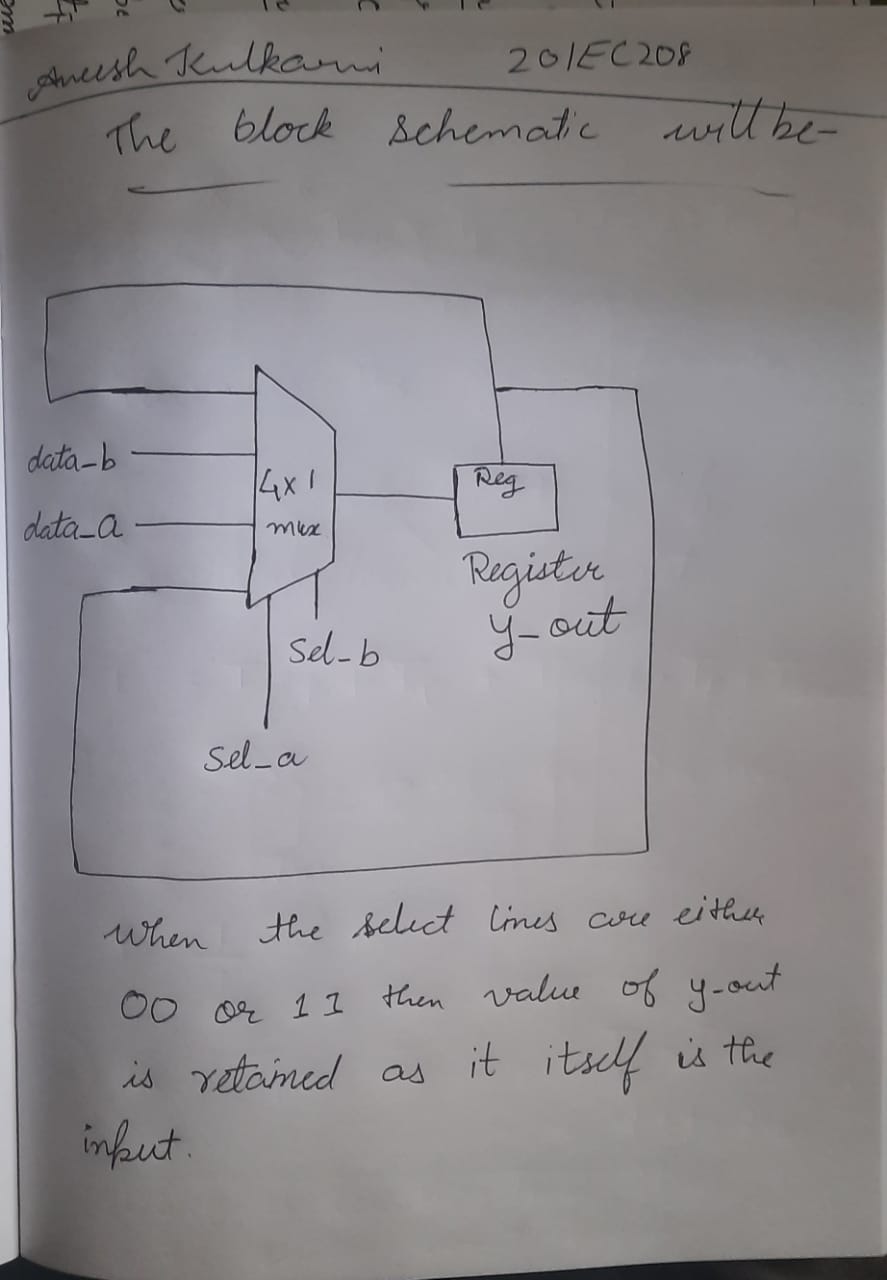 Aneesh Kulkarni 201EC208
The block schematic will be-
data_b
4x1
Reg
data_a
mux
Register
y_out
Sel_b
Sel_a
When the select lines are either
00 or 11 then value of y_out
is retained as it itself is the
input.